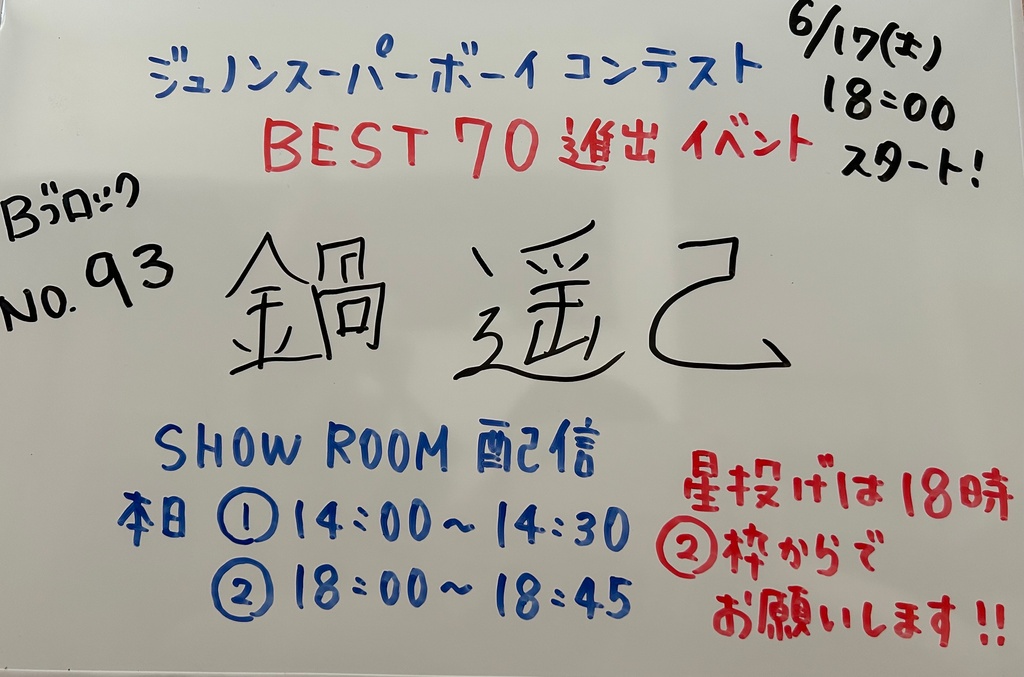 ジュノンスーパーボーイ コンテスト
BEST 70 進出 イベント
6/17(土)
18:00
スタート!
Bブロック
NO. 93
鍋 遥己
SHOW ROOM 配信
本日 ① 14:00~14:30
② 18:00~18:45
星投げは18時
②枠からで
お願いします!!